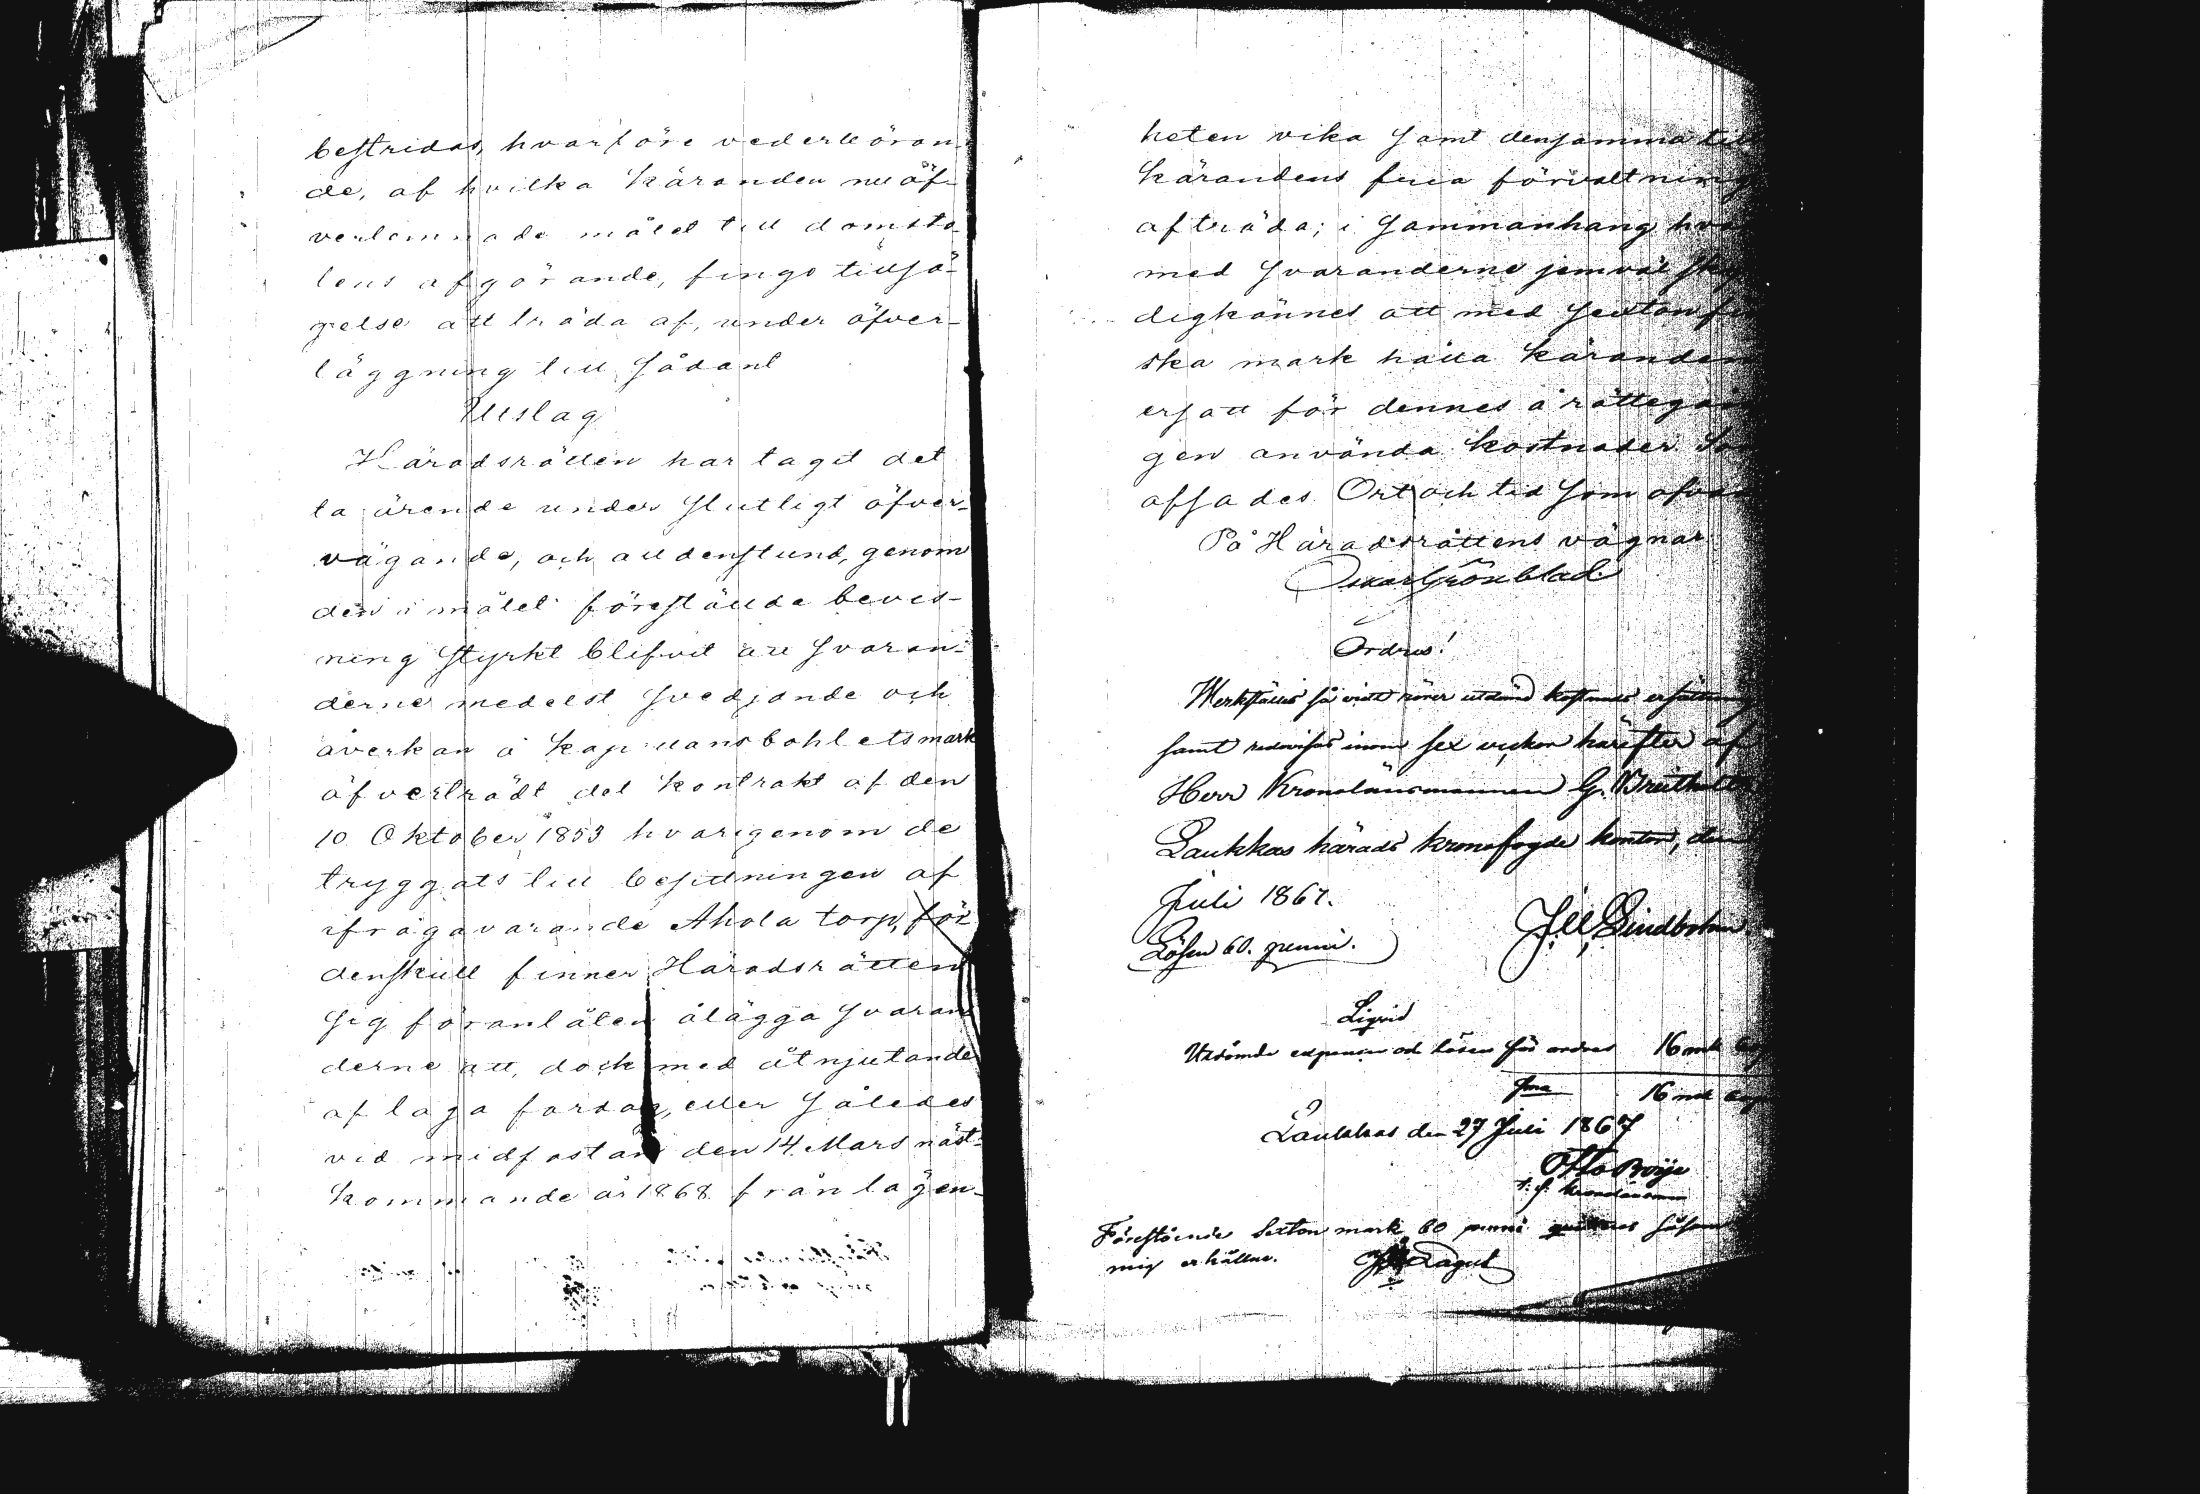 bestridas, hvarföre vederböran-
de, af hvilka käranden nu öf-
verlemnade målet till domsto-
lens afgörande, fingo tillsä-
gelse att träda af, under öfver-
läggning till sådant
Utslag
Häradsrätten har tagit det-
ta ärende under slutligt öfver-
vägande, och alldenstund, genom
den i målet föreställda bevis-
ning styrkt blifvit att svaran-
derne medelst svedjande och
åverkan å kapellansbohlets mark
öfverträdt det kontrakt af den
10 Oktober 1853 hvarigenom de
tryggats till besittningen af
ifrågavarande Ahola torp, för
denskull finner Häradsrätten
sig föranlåten ålägga svaran
derne att, dock med åtnjutande
af laga fardag, eller således
vid midfastan den 14 Mars näst-
kommande år 1868 från lägen-
heten vika samt densamma till
kärandens fria förvaltning
afträda; i sammanhang
med svaranderne jemväl
digkännes att med sexton
ska mark hålla käranden
ersatt för dennes å rättegån
gen använda kostnader.
afsades. Ort och tid som ofvan
På Häradsrättens vägnar
Oskar Grönblad
Ordres!
Werkställes så vidt rörer utdömd kostnads ersättning
samt redovisas inom sex veckor härefter af
Herr Kronolänsmannen G. Breitholtz
Laukkas härads kronofogde kontor, den
Juli 1867.
Lösen 60. penni. Lindbohm
Liqvid
Utdömde expenser och lösen för ordres 16 mk
Sma 16 mk
Laukkas den 27 Juli 1867
Otto Boije
t. f. kronolänsman
Förestående Sexton mark 60 penni
mig erhållne. Lagus